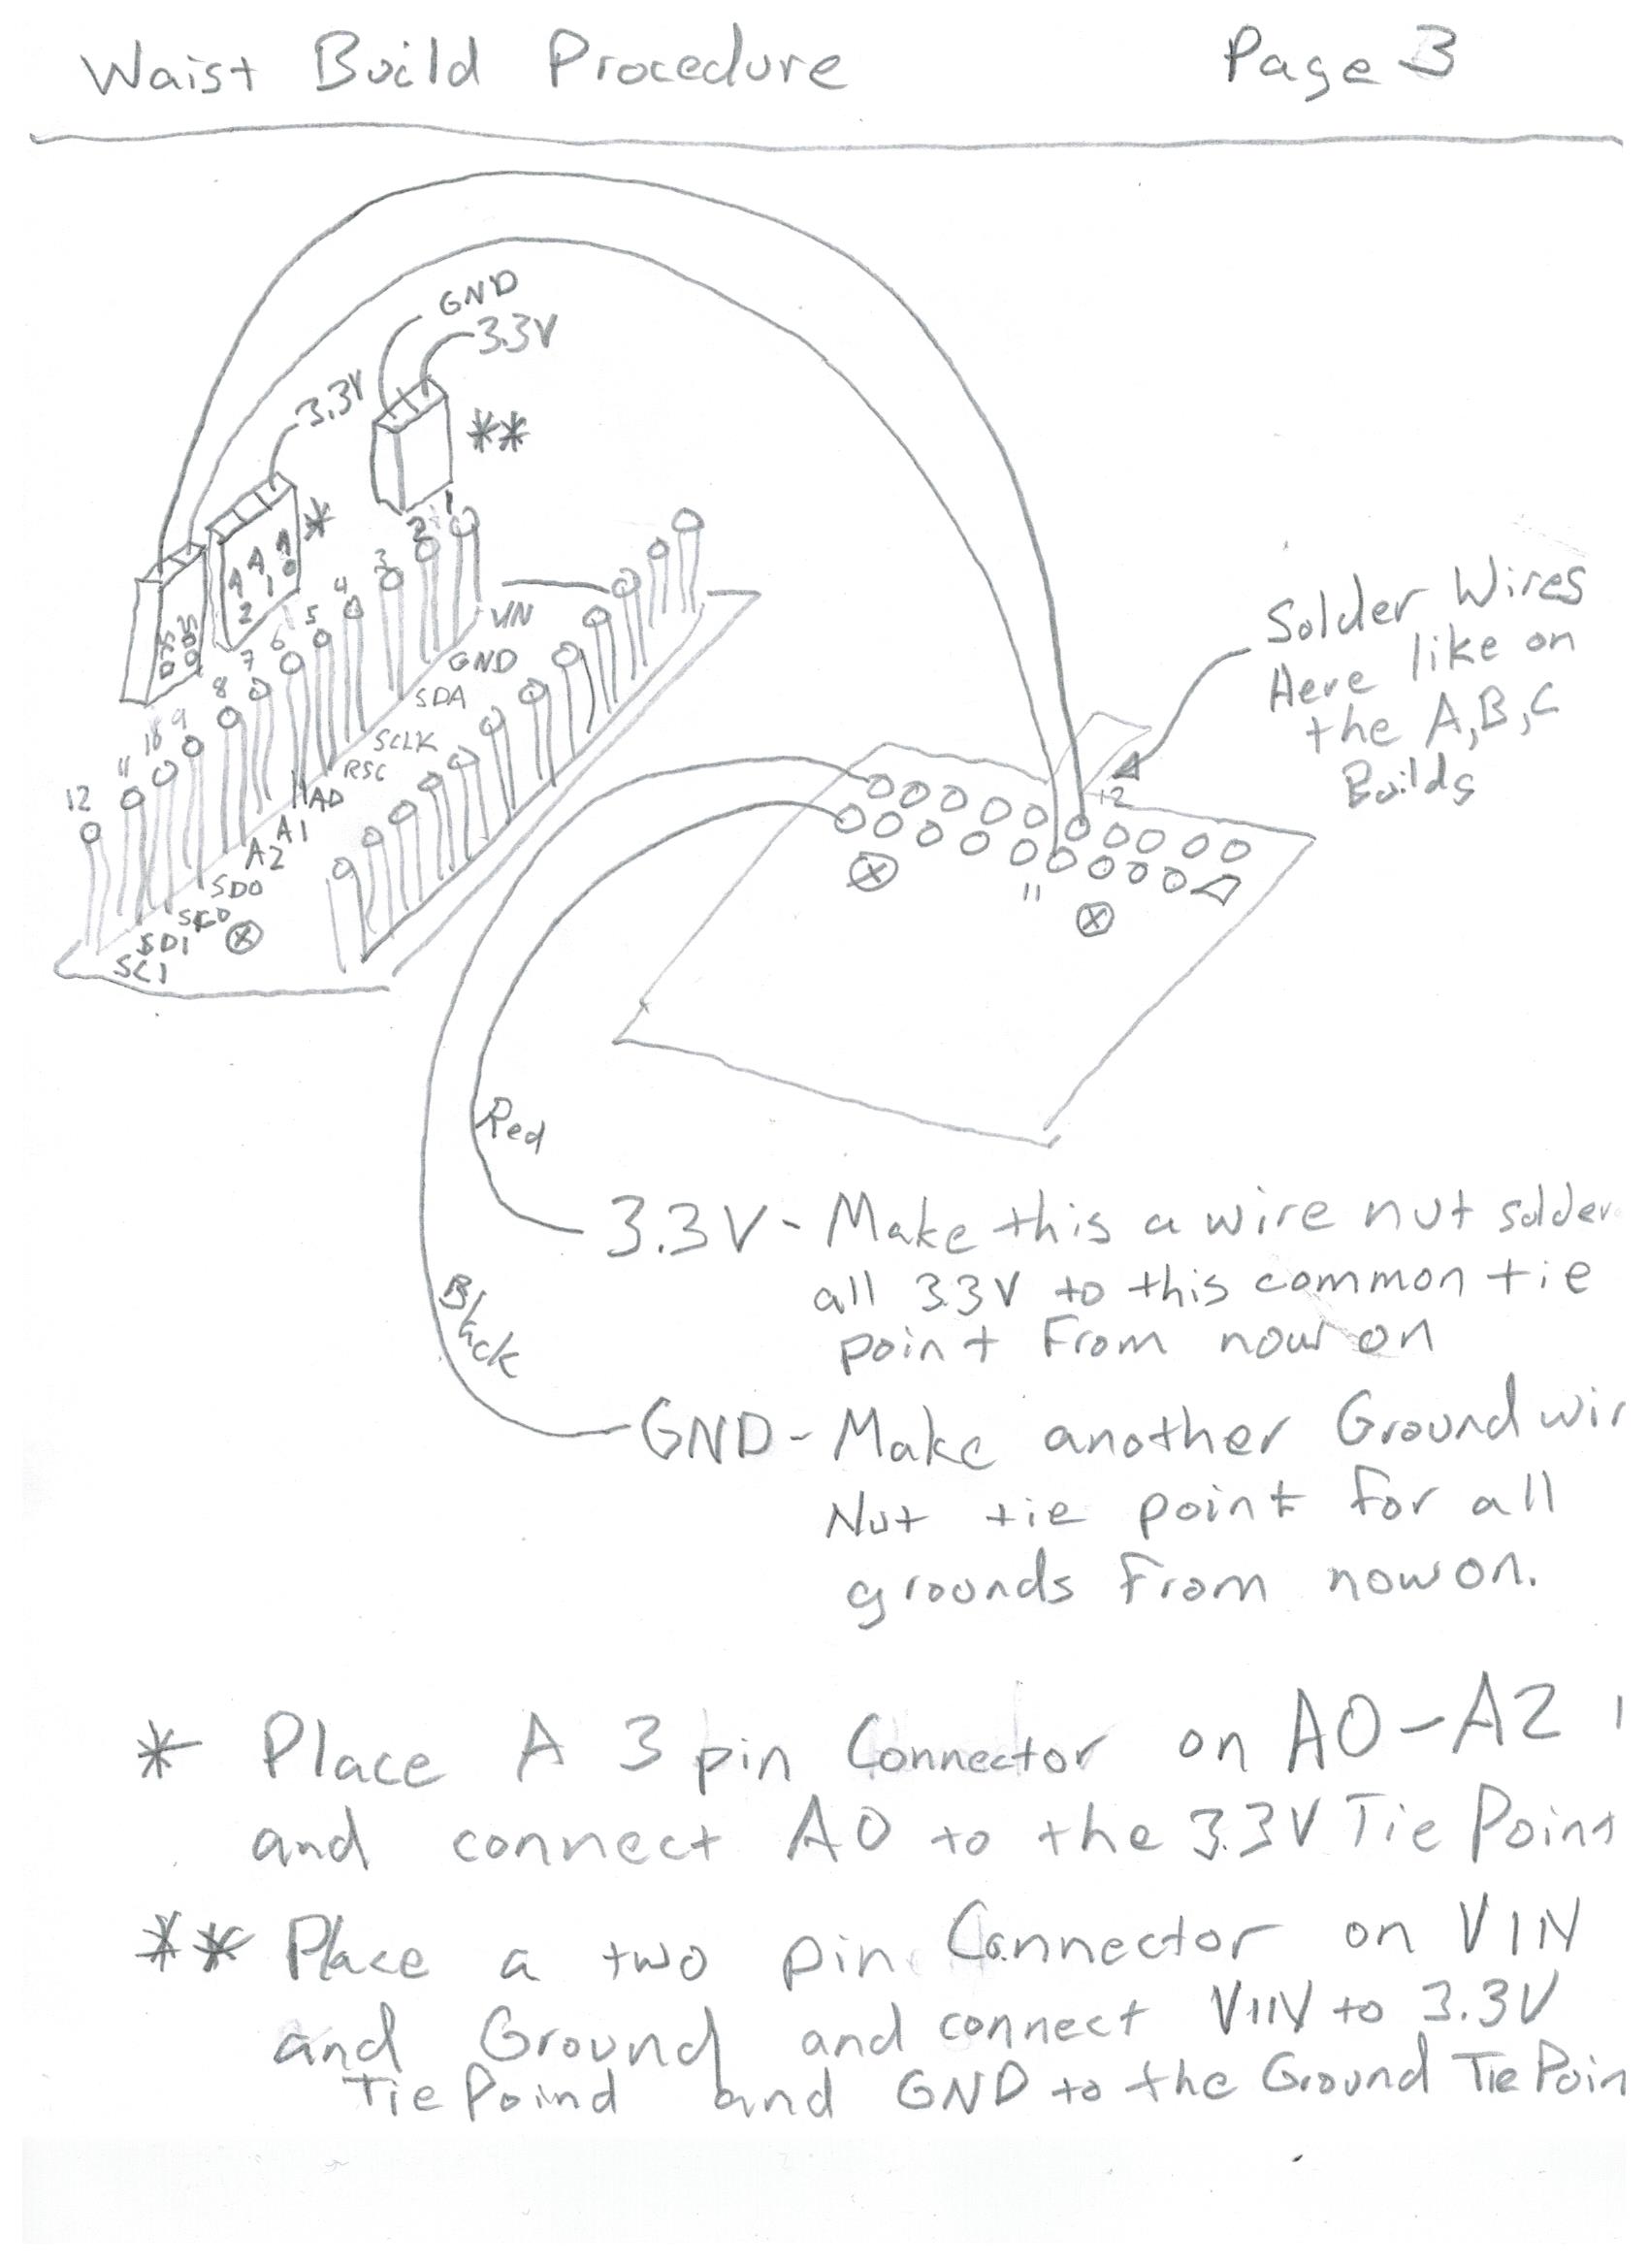 Waist Build Procedure Page 3
GND
3.3V
3.3V
**
*
A2 A1 A0
SC0 SD0
1
2
3
4
5
6
7
8
9
10
11
12
VIN
GND
SDA
SCLK
RSC
A0
A1
A2
SD0
SC0
SD1
SC1
Solder Wires
Here like on
the A,B,C
Builds
12
11
Red
3.3V - Make this a wire nut solder
all 3.3V to this common tie
point From now on
Black
GND - Make another Ground wir
Nut tie point for all
grounds From now on.
* Place A 3 pin Connector on A0-A2
and connect A0 to the 3.3V Tie Point
** Place a two pin Connector on VIN
and Ground and connect VIN to 3.3V
Tie Poind and GND to the Ground Tie Poin